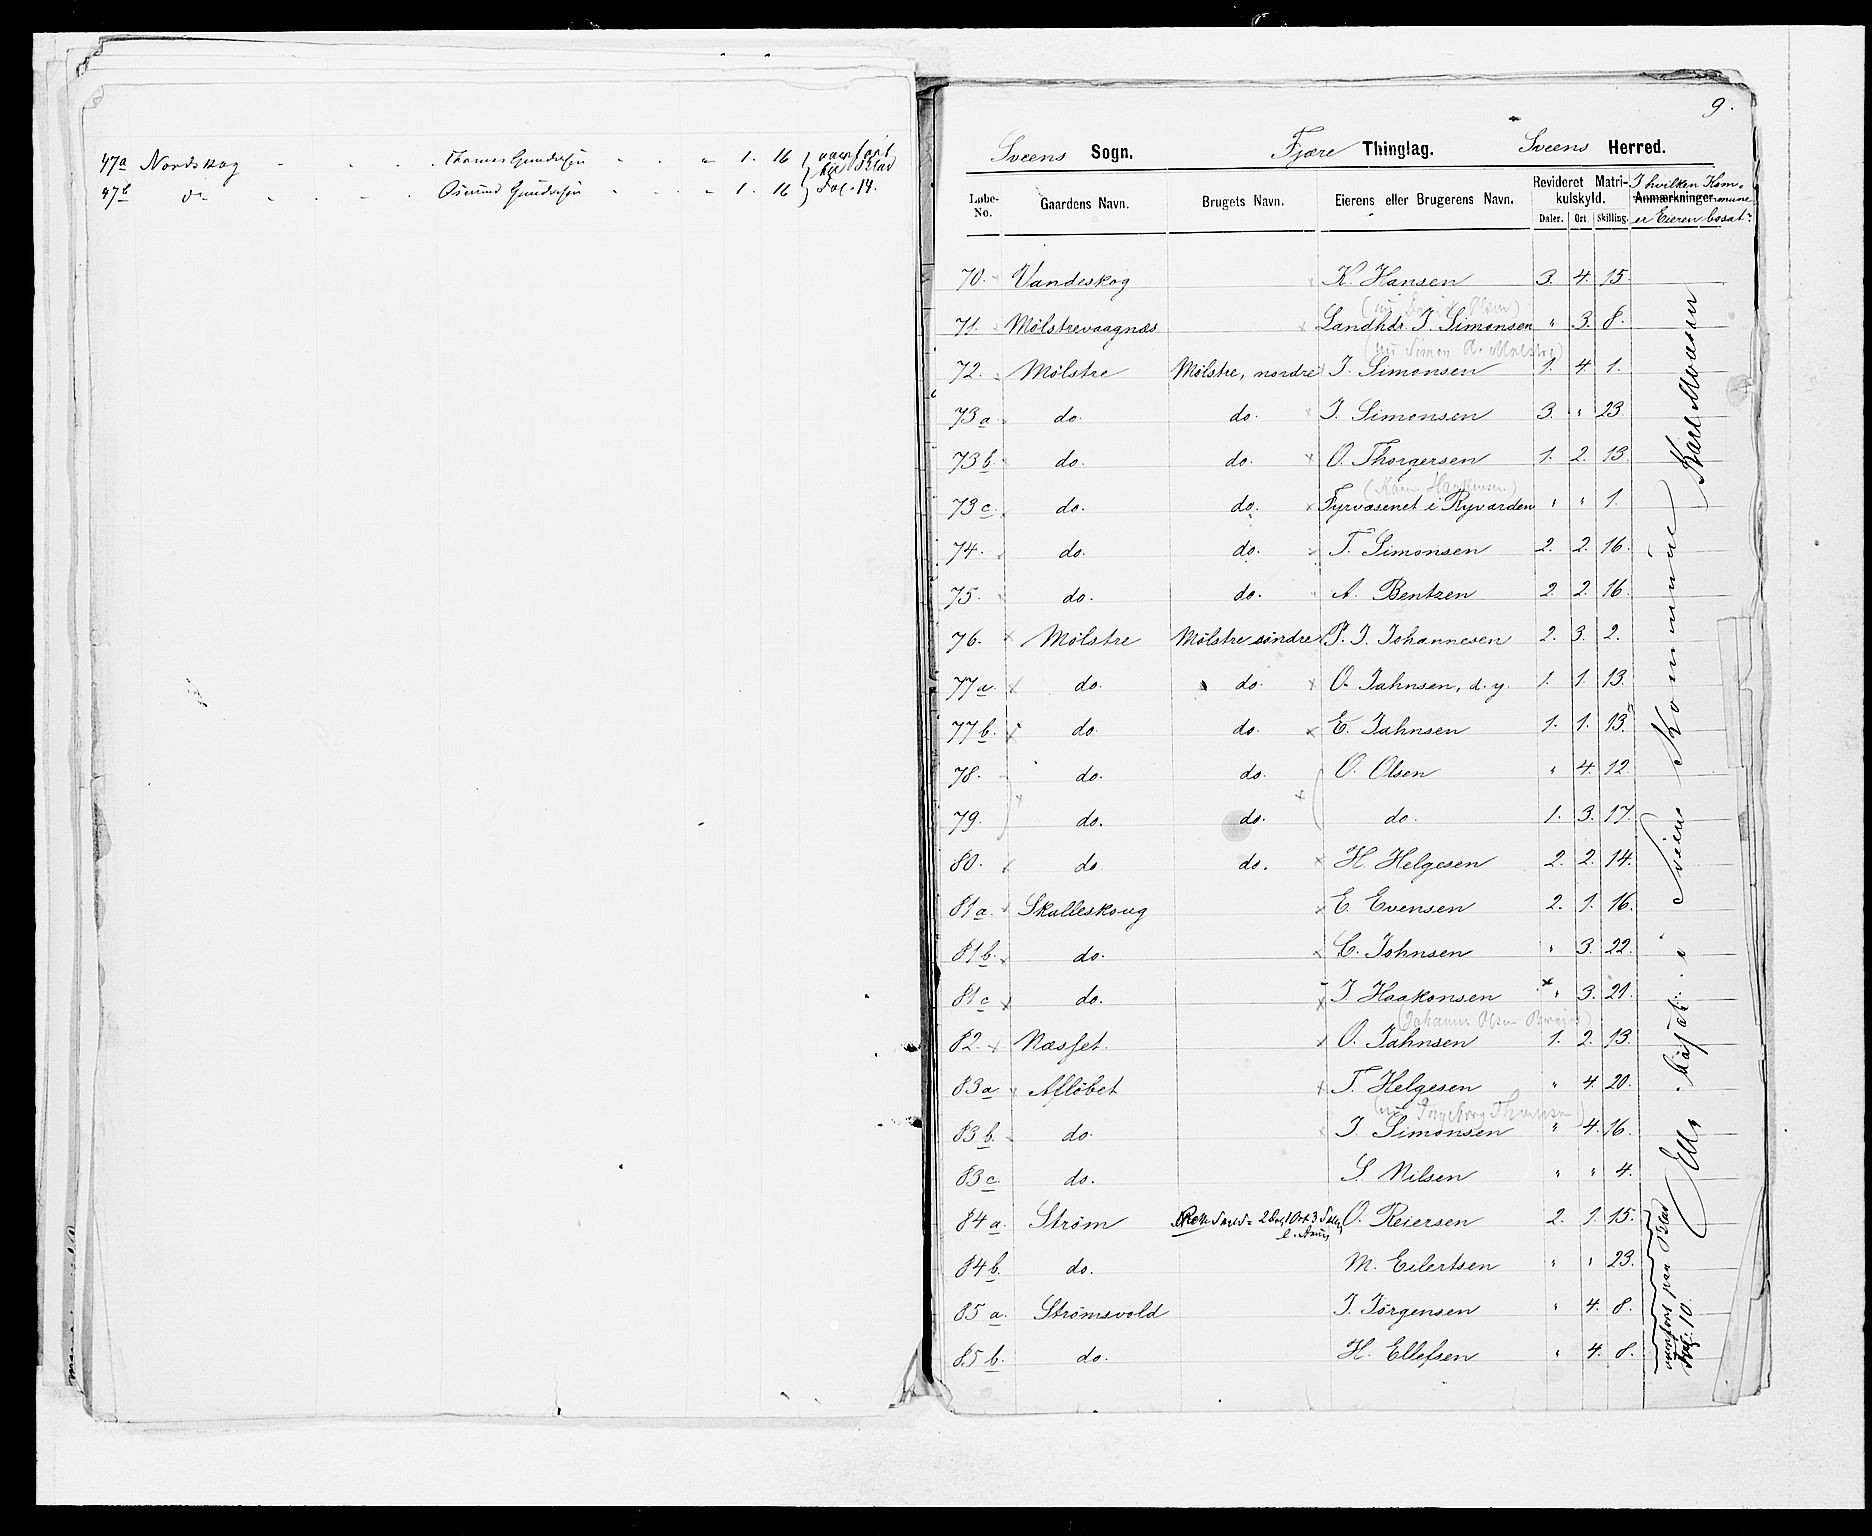 47a Nordskog - . . . Thomas Gundersen . . " 1. 16
47b do - . . . Osmund Gundersen . . " 1. 16 Fol. 14.
9.
Sveens Sogn. Fjære Thinglag. Sveens Herred.
Løbe-No. Gaardens Navn. Brugets Navn. Eierens eller Brugerens Navn. Revideret Matrikulskyld. Daler. Ort. Skilling. Anmærkninger. I hvilken Kommune er Eieren bosat.
70. Vandeskog K. Hansen 3. 4. 15.
71. Mølstrevaagnæs Landhdr. I. Simonsen " 3. 8.
(nu Simon A. Mølstre)
72. Mølstre Mølstre, nordre I. Simonsen 1. 4. 1.
73a. do. do. I. Simonsen 3. " 23.
73b. do. do. O. Thorgersen 1. 2. 13.
73c. do. do. Fyrvæsenet i Ryvarden " " 1.
74. do. do. T. Simonsen 2. 2. 16.
75. do. do. A. Bentzen 2. 2. 16.
76. Mølstre Mølstre søndre P. I. Johannesen 2. 3. 2.
77a. do. do. O. Jahnsen, d. y. 1. 1. 13.
77b. do. do. E. Jahnsen 1. 1. 13.
78. do. do. O. Olsen " 4. 12.
79. do. do. do. 1. 3. 17.
80. do. do. H. Helgesen 2. 2. 14.
81a. Skalleskoug E. Evensen 2. 1. 16.
81b. do. C. Johnsen " 3. 22.
81c. do. I. Haakonsen " 3. 21.
82. Næsset. O. Jahnsen 1. 2. 13.
83a. Afløbet T. Helgesen " 4. 20.
(nu Ingeborg Thomsen)
83b. do. I. Simonsen " 4. 16.
83c. do. S. Nilsen " " 4.
84a. Strøm O. Reiersen 2. 1. 15.
84b. do. M. Eilertsen " " 23.
85a. Strømsvold I. Jørgensen " 4. 8.
85b. do. H. Ellefsen " 4. 8.
Alle bosat i Sveens Kommune
overført paa Blad
Fol. 10.